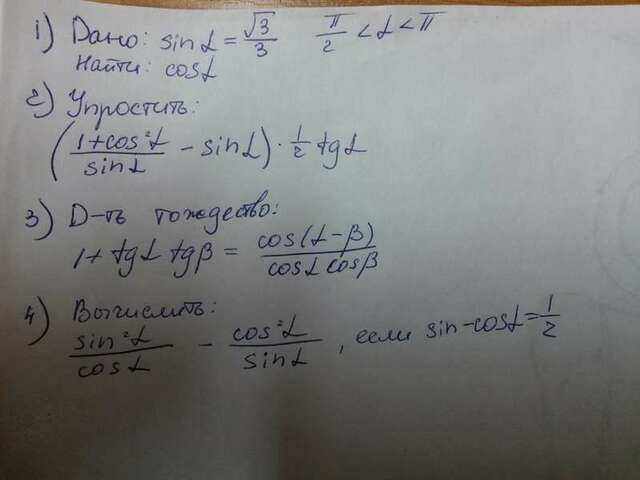 1) Дано: sin α = √3/3   π/2 < α < π
Найти: cos α
2) Упростить:
((1+cos²α)/(sin α) − sin α) · 1/2 tg α
3) Д-ть тождество:
1 + tg α tg β = cos(α−β)/(cos α cos β)
4) Вычислить:
sin²α/cos α − cos²α/sin α, если sin − cos α = 1/2